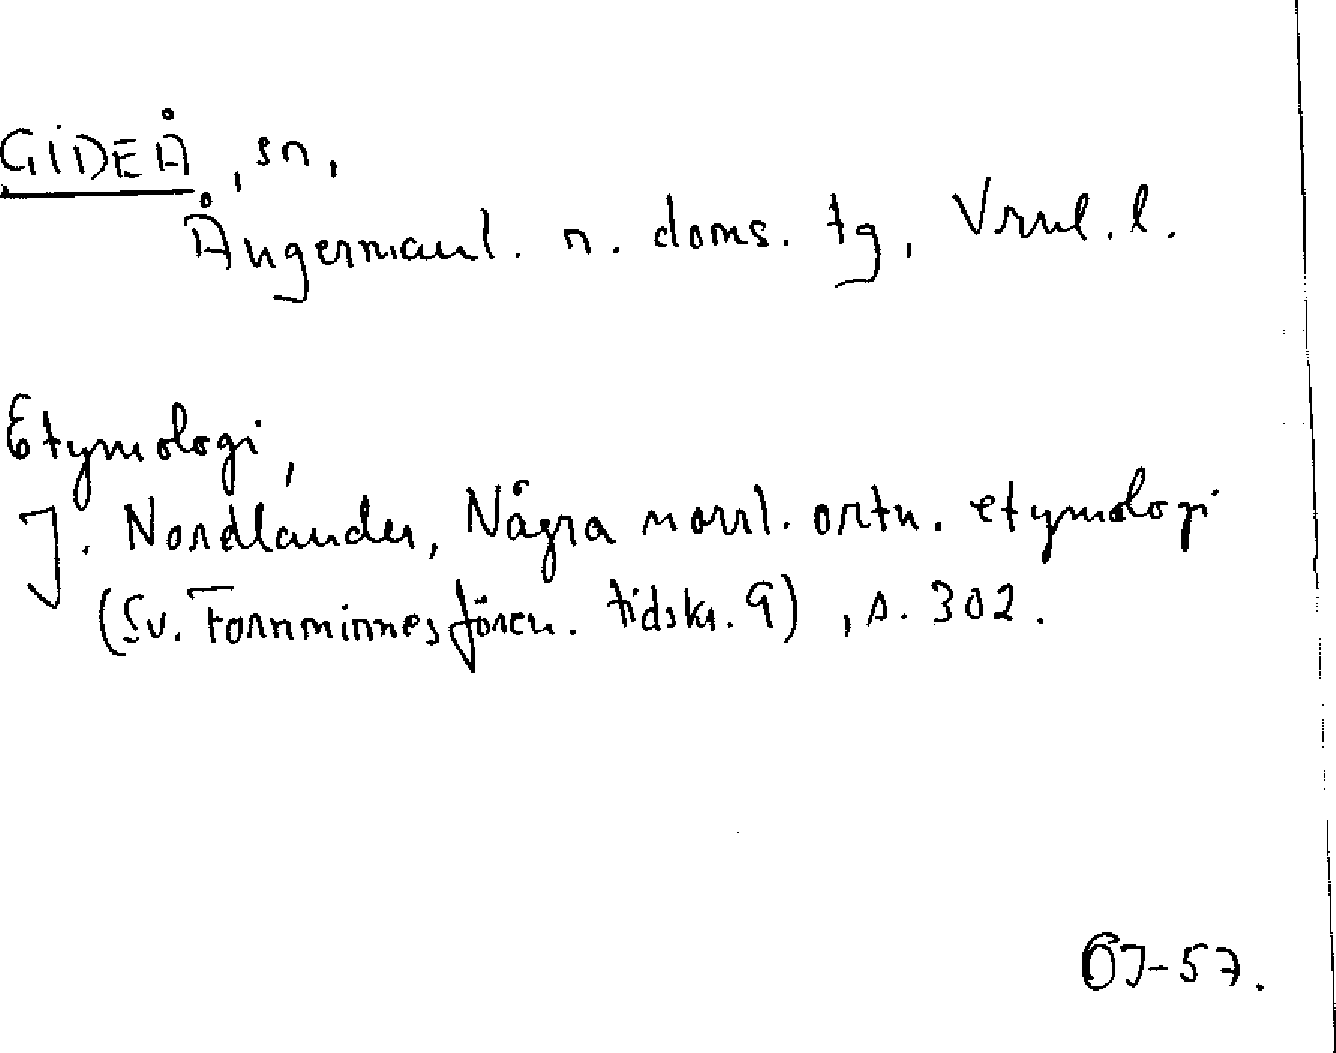 GIDEÅ, sn,
Ångermanl. n. doms. tg, Vrnl. l.
Etymologi,
J. Nordlander, Några norrl. ortn. etymologi
(Sv. Fornminnesfören. tidskr. 9), s. 302.
ÖJ-57.